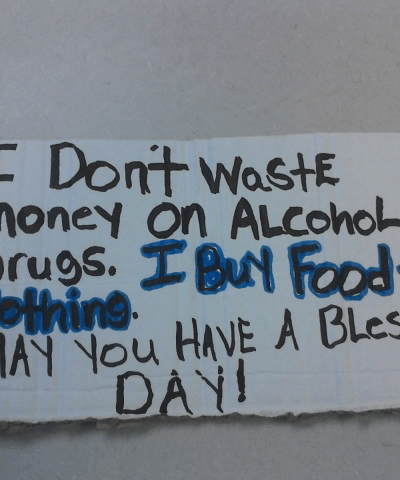 I Don't Waste
money on Alcohol
Drugs. I Buy Food
lothing.
MAY You HAVE A Bles
DAY!